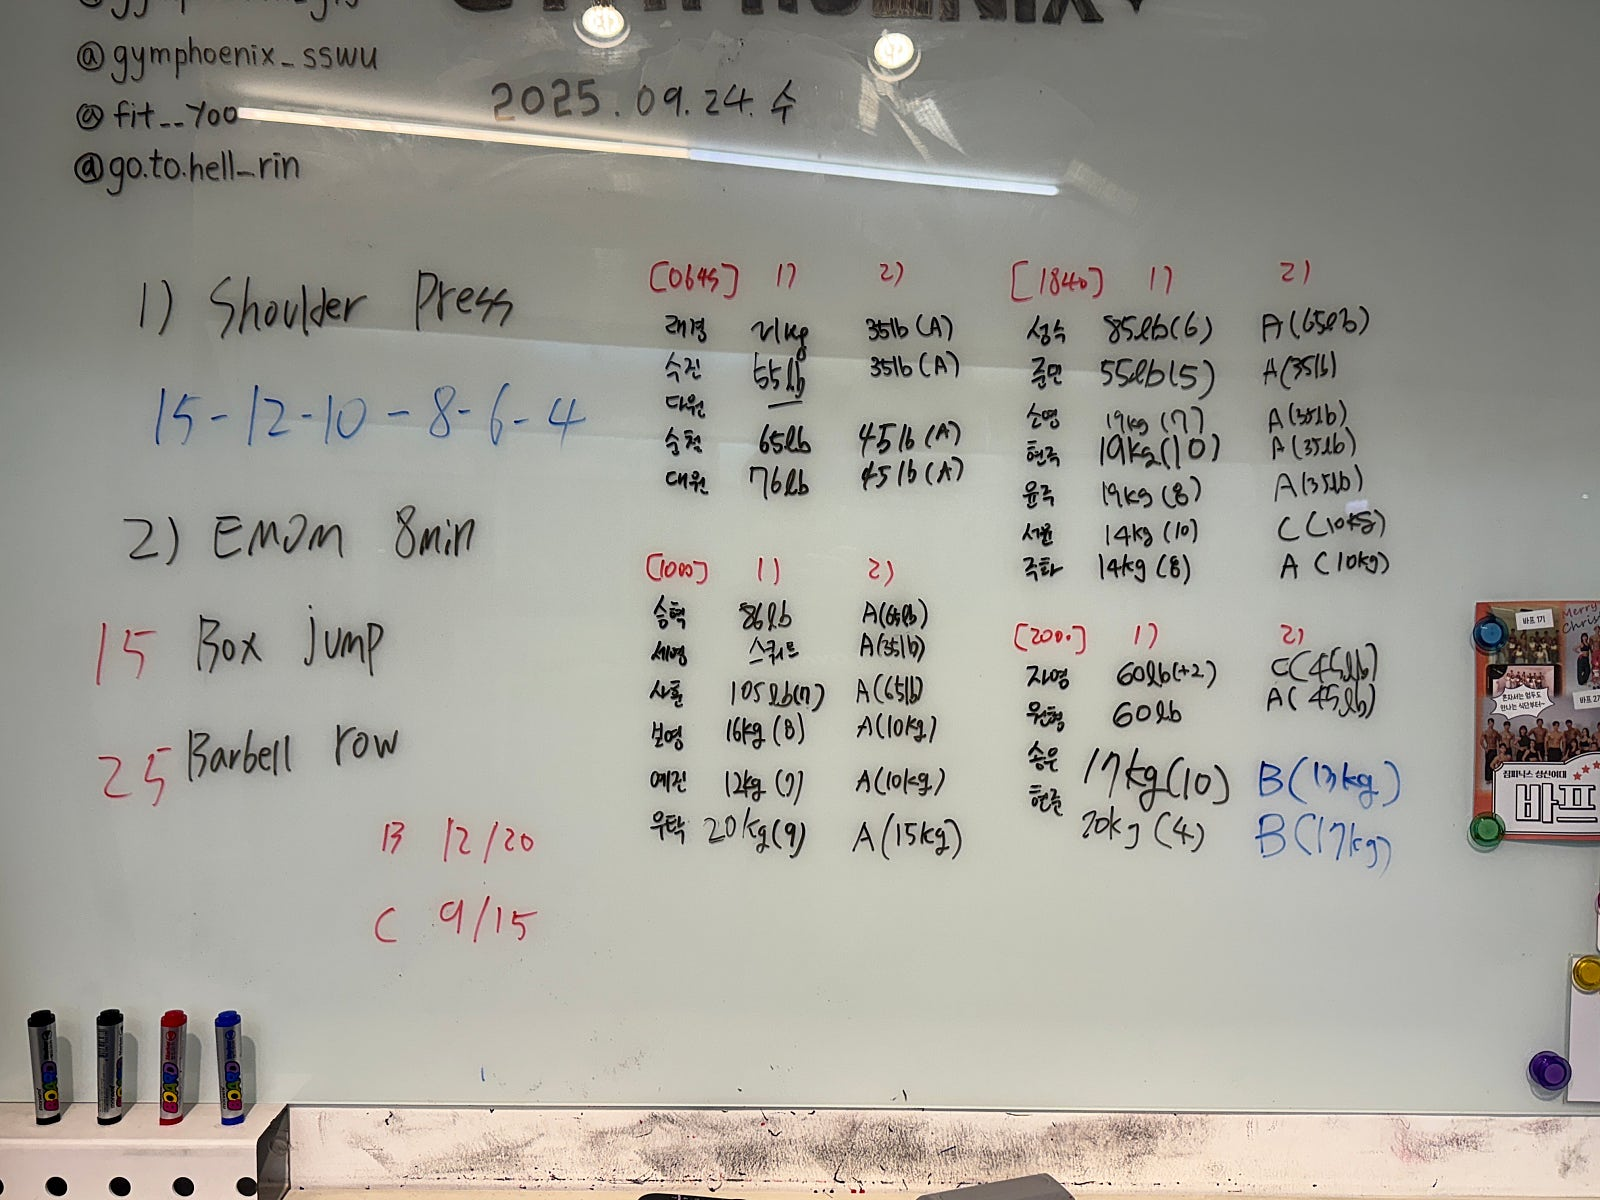 @gymphoenix_sswu
@fit__yoo
@go.to.hell_rin
2025.09.24.수
1) Shoulder Press
15-12-10-8-6-4
2) EMOM 8min
15 Box jump
25 Barbell row
B 12/20
C 9/15
[0645] 1) 2)
래경 21kg 35lb (A)
수진 55lb 35lb (A)
다원
승철 65lb 45lb (A)
대원 76lb 45lb (A)
[1000] 1) 2)
승혁 86lb A(65lb)
세영 스쿼트 A(35lb)
사훈 105lb(7) A(65lb)
보영 16kg (8) A(10kg)
예진 12kg (7) A(10kg)
우탁 20kg(9) A(15kg)
[1840] 1) 2)
성수 85lb(6) A(65lb)
준민 55lb(5) A(35lb)
소영 19kg (7) A(35lb)
현주 19kg(10) A(35lb)
윤주 19kg (8) A(35lb)
서윤 14kg (10) C (10kg)
국화 14kg (8) A (10kg)
[2000] 1) 2)
자영 60lb(+2) C(45lb)
원형 60lb A(45lb)
송은 17kg(10) B(13kg)
현준 20kg (4) B(17kg)
바프 1기
Merry
Chris
혼자서는 엄두도
안나는 식단부터~
바프 2기
짐피닉스 성신여대
바프
BOARD
BOARD
BOARD
BOARD